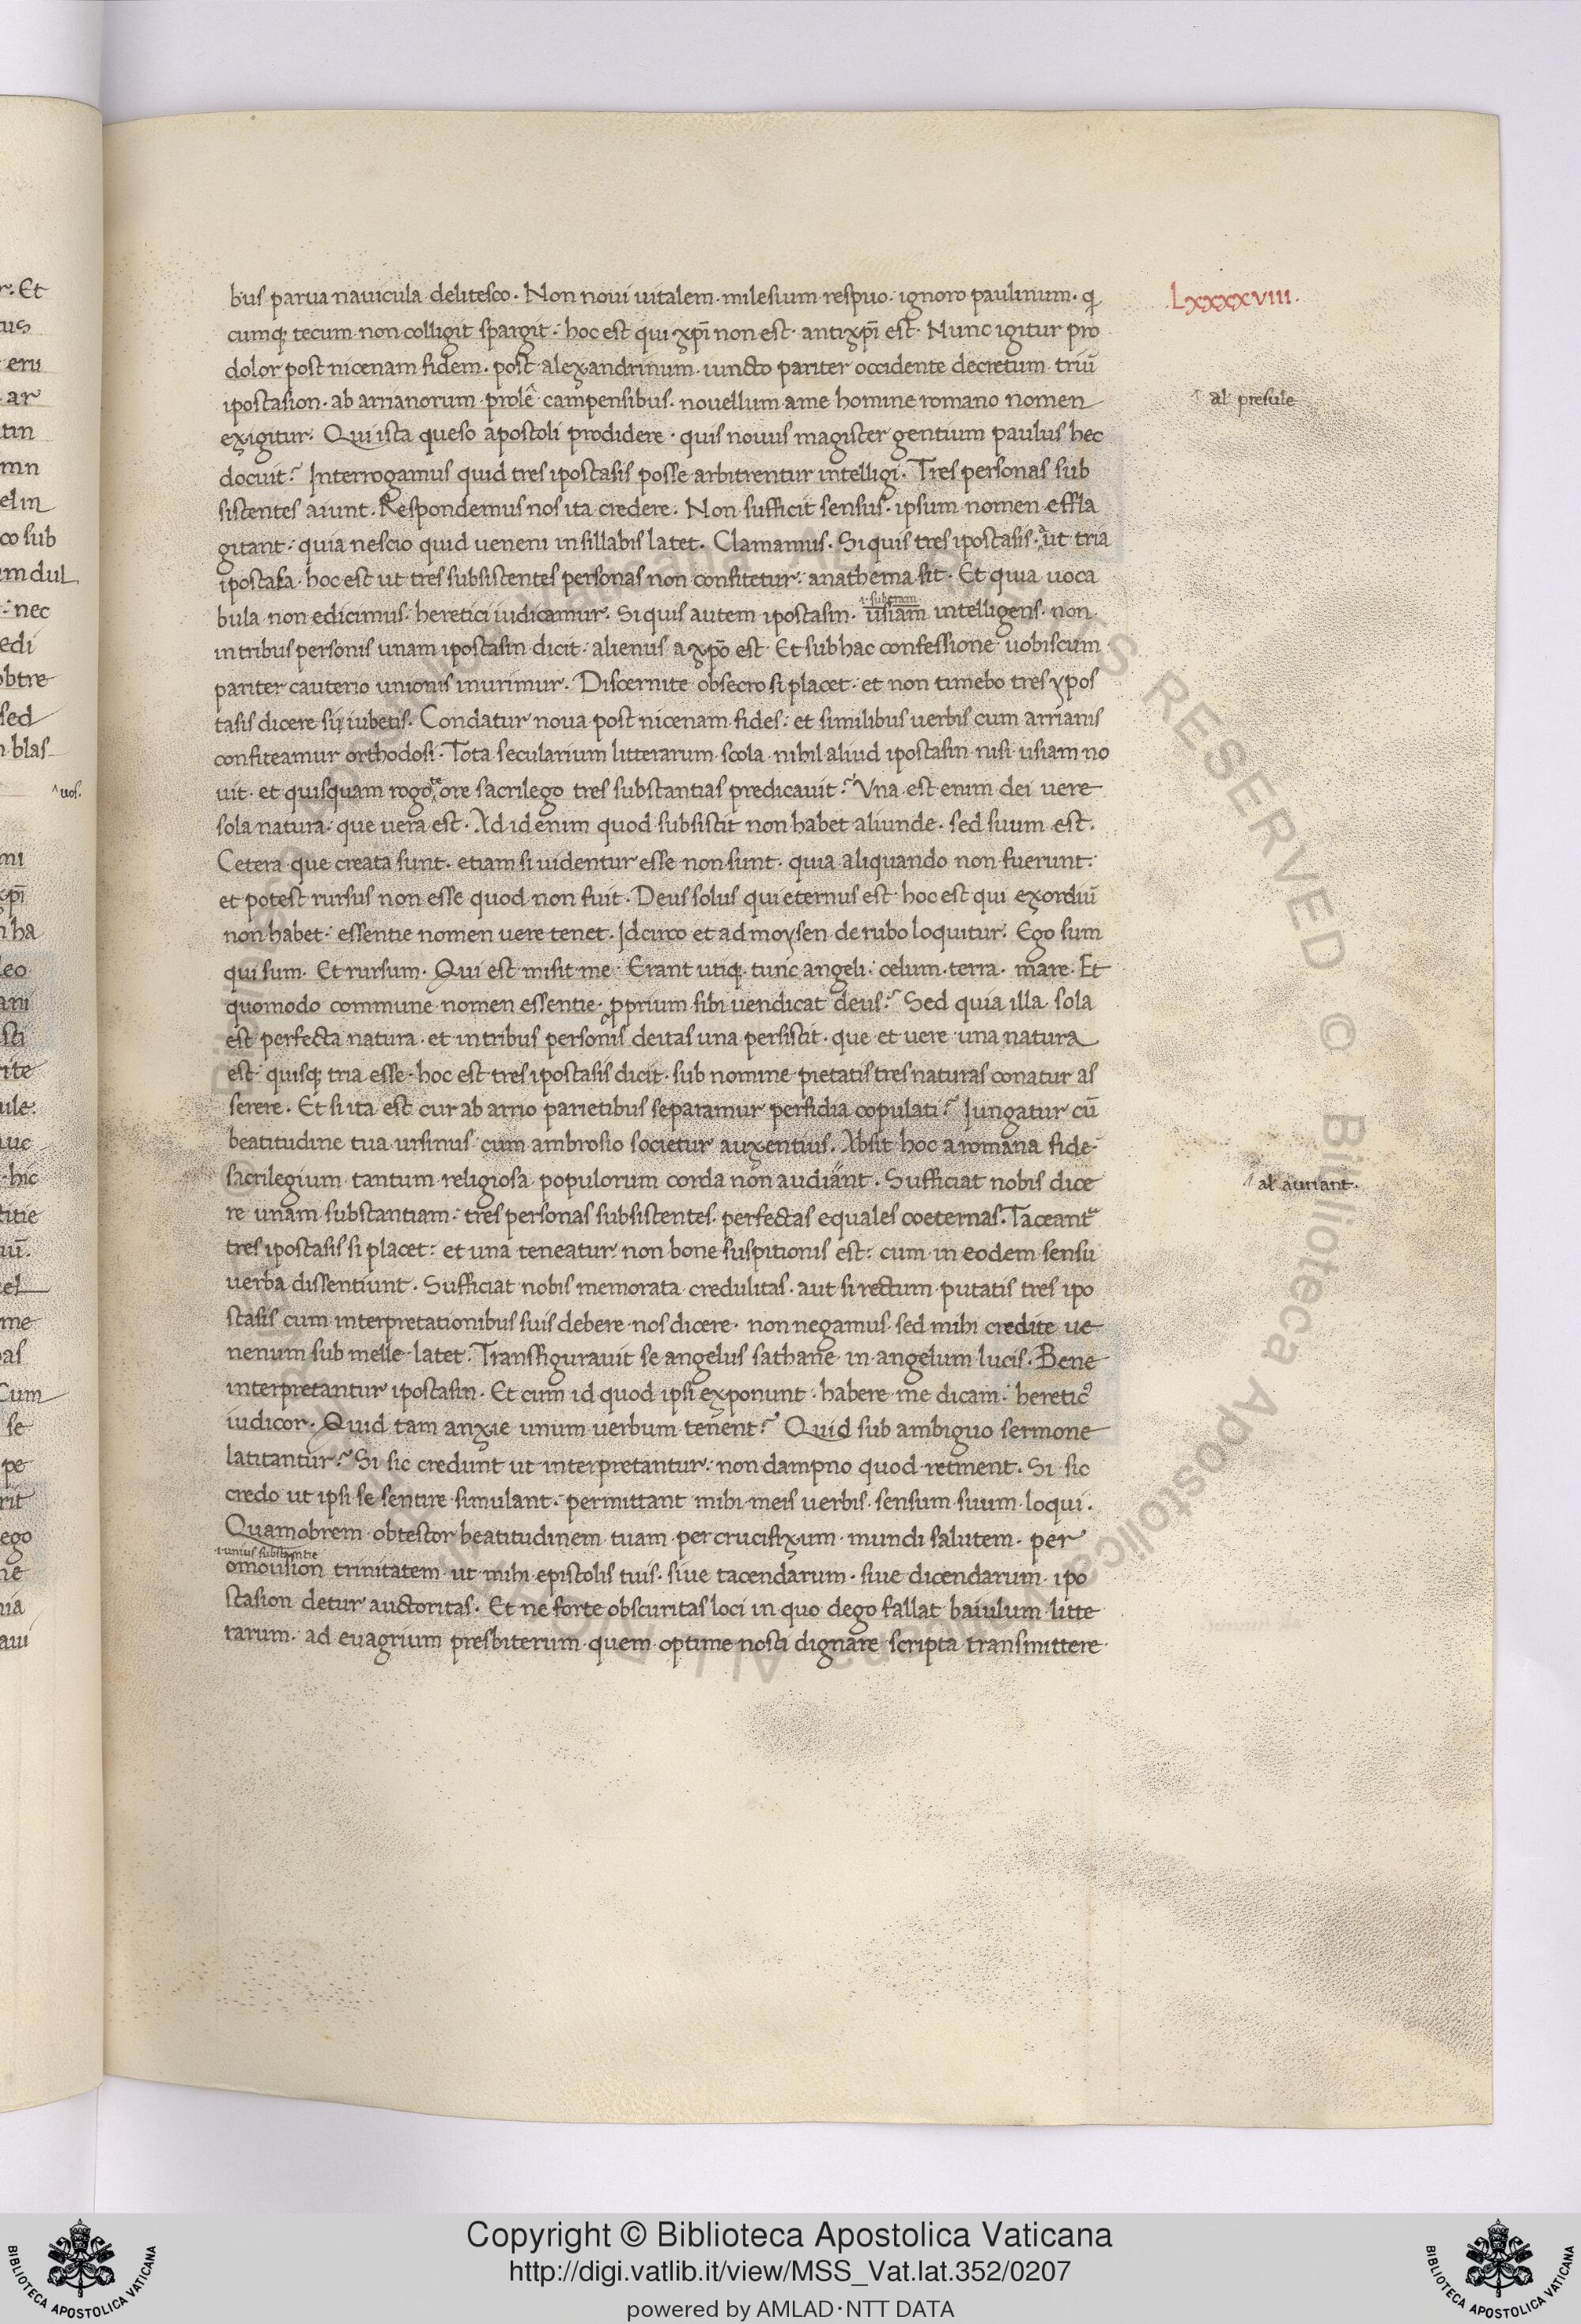 Lxxxxviii.
bus parua nauicula delitesco. Non noui uitalem. milesium respuo. ignoro paulinum. q
cumq; tecum non colligit spargit. hoc est qui xp̄i non est. antixp̄i est. Nunc igitur pro
dolor post nicenam fidem. post alexandrinum. iuncto pariter occidente decretum triū
ipostasion. ab arrianorum prolê campensibus. nouellum a me homine romano nomen
al presule
exigitur. Qui ista queso apostoli prodidere. quis nouus magister gentium paulus hec
docuit? Interrogamus quid tres ipostasis posse arbitrentur intelligi. Tres personas sub
sistentes aiunt. Respondemus nos ita credere. Non sufficit sensus. ipsum nomen effla
gitant. quia nescio quid ueneni in sillabis latet. Clamamus. Si quis tres ipostasis. ut tria
ipostasa. hoc est ut tres subsistentes personas non confitetur. anathema sit. Et quia uoca
bula non edicimus. heretici iudicamur. Si quis autem ipostasin. usiam intelligens. non
in tribus personis unam ipostasin dicit. alienus a xp̄o est. Et sub hac confessione uobiscum
pariter cauterio unionis inurimur. Discernite obsecro si placet. et non timebo tres ypos
tasis dicere si iubetis. Condatur noua post nicenam fides. et similibus uerbis cum arrianis
confiteamur orthodosi. Tota secularium litterarum scola nihil aliud ipostasin nisi usiam no
uit. et quisquam rogo te ore sacrilego tres substantias predicauit? Vna est enim dei uere
sola natura. que uera est. Ad id enim quod subsistit non habet aliunde. sed suum est.
Cetera que creata sunt. etiam si uidentur esse non sunt. quia aliquando non fuerunt.
et potest rursus non esse quod non fuit. Deus solus qui eternus est. hoc est qui exordiū
non habet. essentie nomen uere tenet. Idcirco et ad moysen de rubo loquitur. Ego sum
qui sum. Et rursum. Qui est misit me. Erant utiq; tunc angeli. celum. terra. mare. Et
quomodo commune nomen essentie. p̱prium sibi uendicat deus? Sed quia illa sola
est perfecta natura. et in tribus personis deitas una persistit. que et uere una natura
est. quisq; tria esse. hoc est tres ipostasis dicit. sub nomine pietatis tres naturas conatur as
serere. Et si ita est cur ab arrio parietibus separamur perfidia copulati? Iungatur cū
beatitudine tua ursinus. cum ambrosio societur auxentius. Absit hoc a romana fide.
sacrilegium tantum religiosa populorum corda non audiant. Sufficiat nobis dice
al auriant.
re unam substantiam. tres personas subsistentes. perfectas equales coeternas. Taceant
tres ipostasis si placet. et una teneatur non bone suspitionis est. cum in eodem sensu
uerba dissentiunt. Sufficiat nobis memorata credulitas. aut si rectum putatis tres ipo
stasis cum interpretationibus suis debere nos dicere. non negamus. sed mihi credite ue
nenum sub melle latet. Transfigurauit se angelus sathane in angelum lucis. Bene
interpretantur ipostasin. Et cum id quod ipsi exponunt. habere me dicam. heretic9
iudicor. Quid tam anxie unum uerbum tenent? Quid sub ambiguo sermone
latitantur? Si sic credunt ut interpretantur. non dampno quod retinent. Si sic
credo ut ipsi se sentire simulant. permittant mihi meis uerbis. sensum suum loqui.
Quamobrem obtestor beatitudinem tuam. per crucifixum mundi salutem. per
.i. unius substantie
omousion trinitatem. ut mihi epistolis tuis. siue tacendarum. siue dicendarum. ipo
stasion detur auctoritas. Et ne forte obscuritas loci in quo dego fallat baiulum litte
rarum. ad euagrium presbiterum quem optime nosti dignare scripta transmittere.
Copyright © Biblioteca Apostolica Vaticana
http://digi.vatlib.it/view/MSS_Vat.lat.352/0207
powered by AMLAD·NTT DATA
BIBLIOTECA APOSTOLICA VATICANA
BIBLIOTECA APOSTOLICA VATICANA